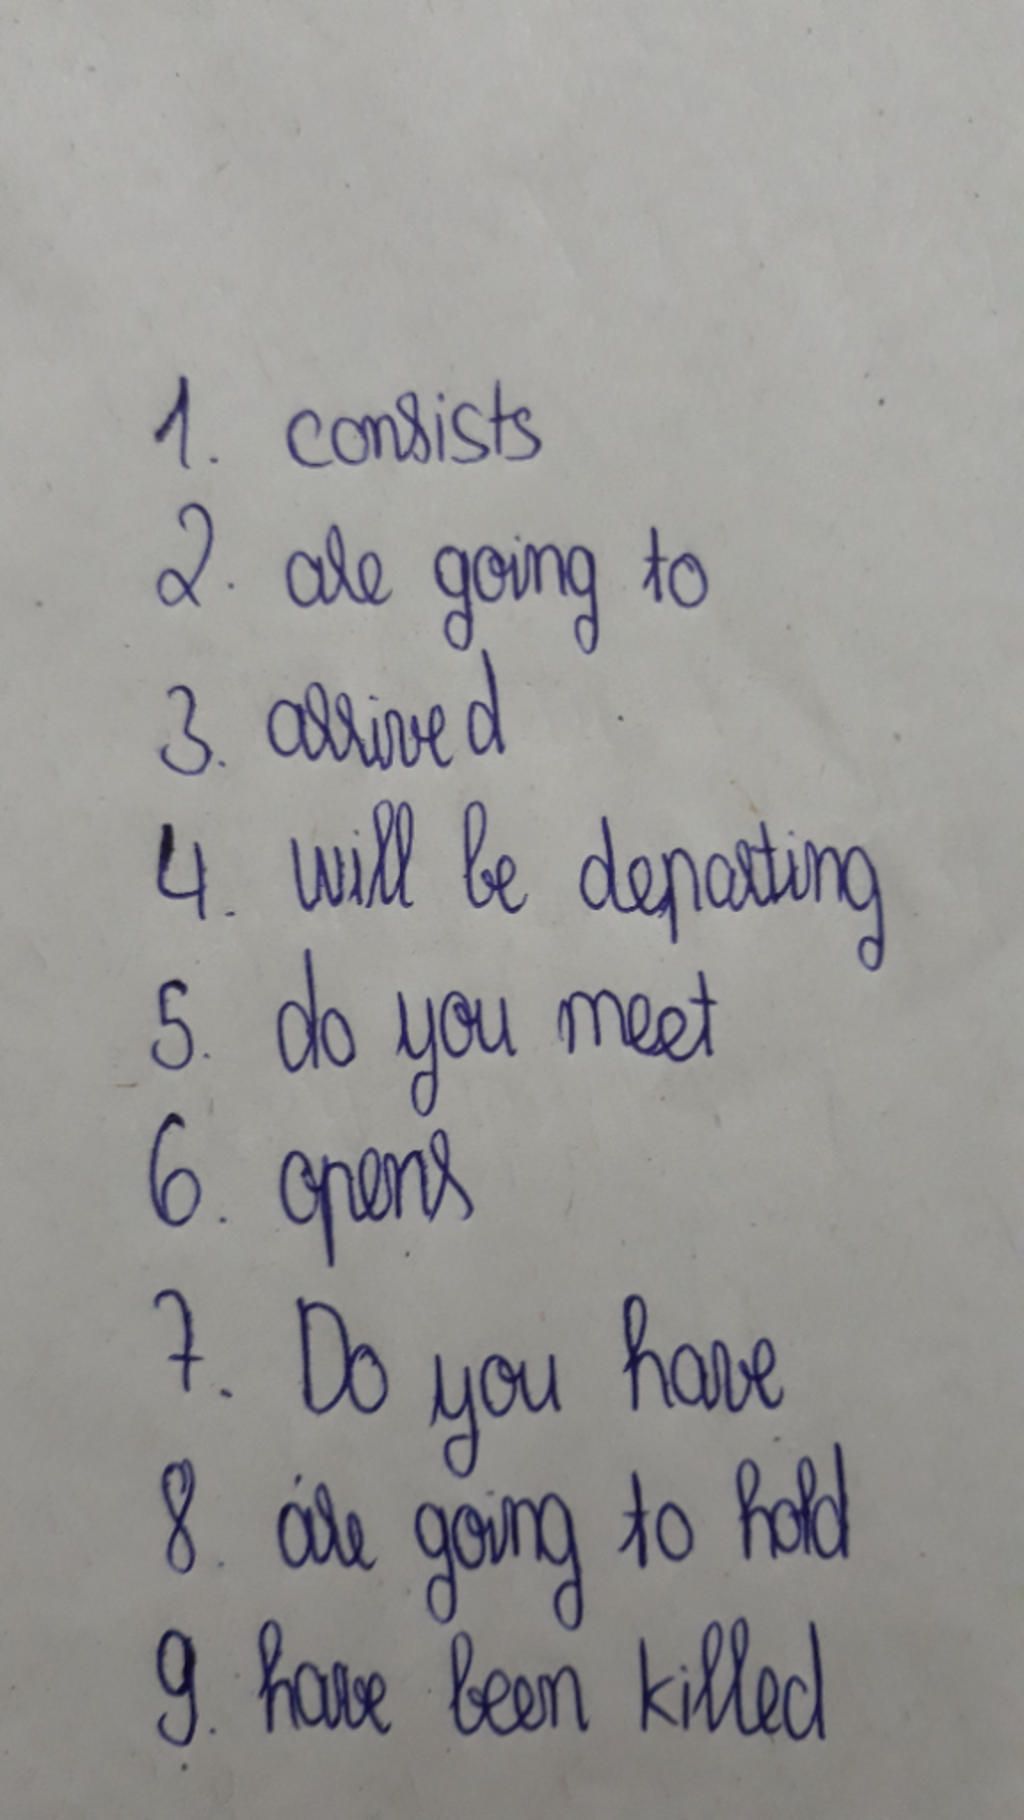 1. consists
2. are going to
3. arrived
4. will be departing
5. do you meet
6. opens
7. Do you have
8. are going to hold
9. have been killed